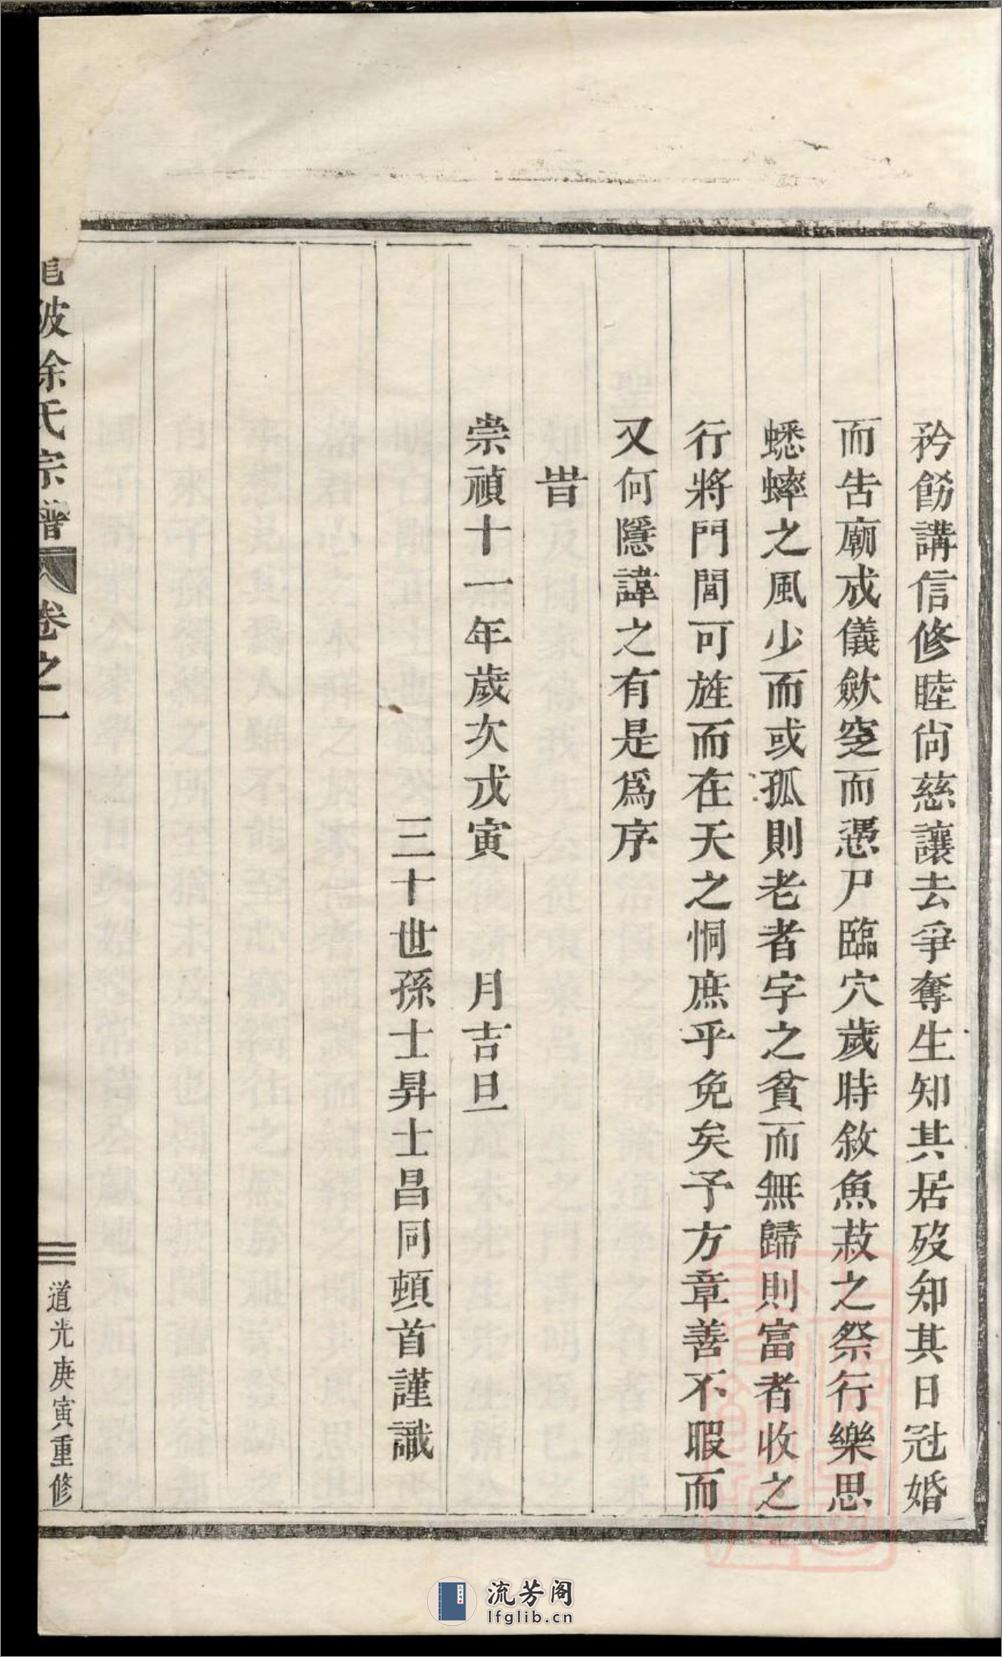 矜飭講信修睦尙慈讓去爭奪生知其居歿知其日冠婚
而告廟戒儀歛窆而憑尸臨穴歲時敘魚菽之祭行樂思
蟋蟀之風少而或孤則老者字之貧而無歸則富者收之
行將門閭可旌而在天之恫庶乎免矣予方章善不暇而
又何隱諱之有是爲序
旹
崇禎十一年歲次戊寅 月吉旦
三十世孫士昇士昌同頓首謹識
陂徐氏宗譜 卷之一
道光庚寅重修
流芳阁
lfglib.cn